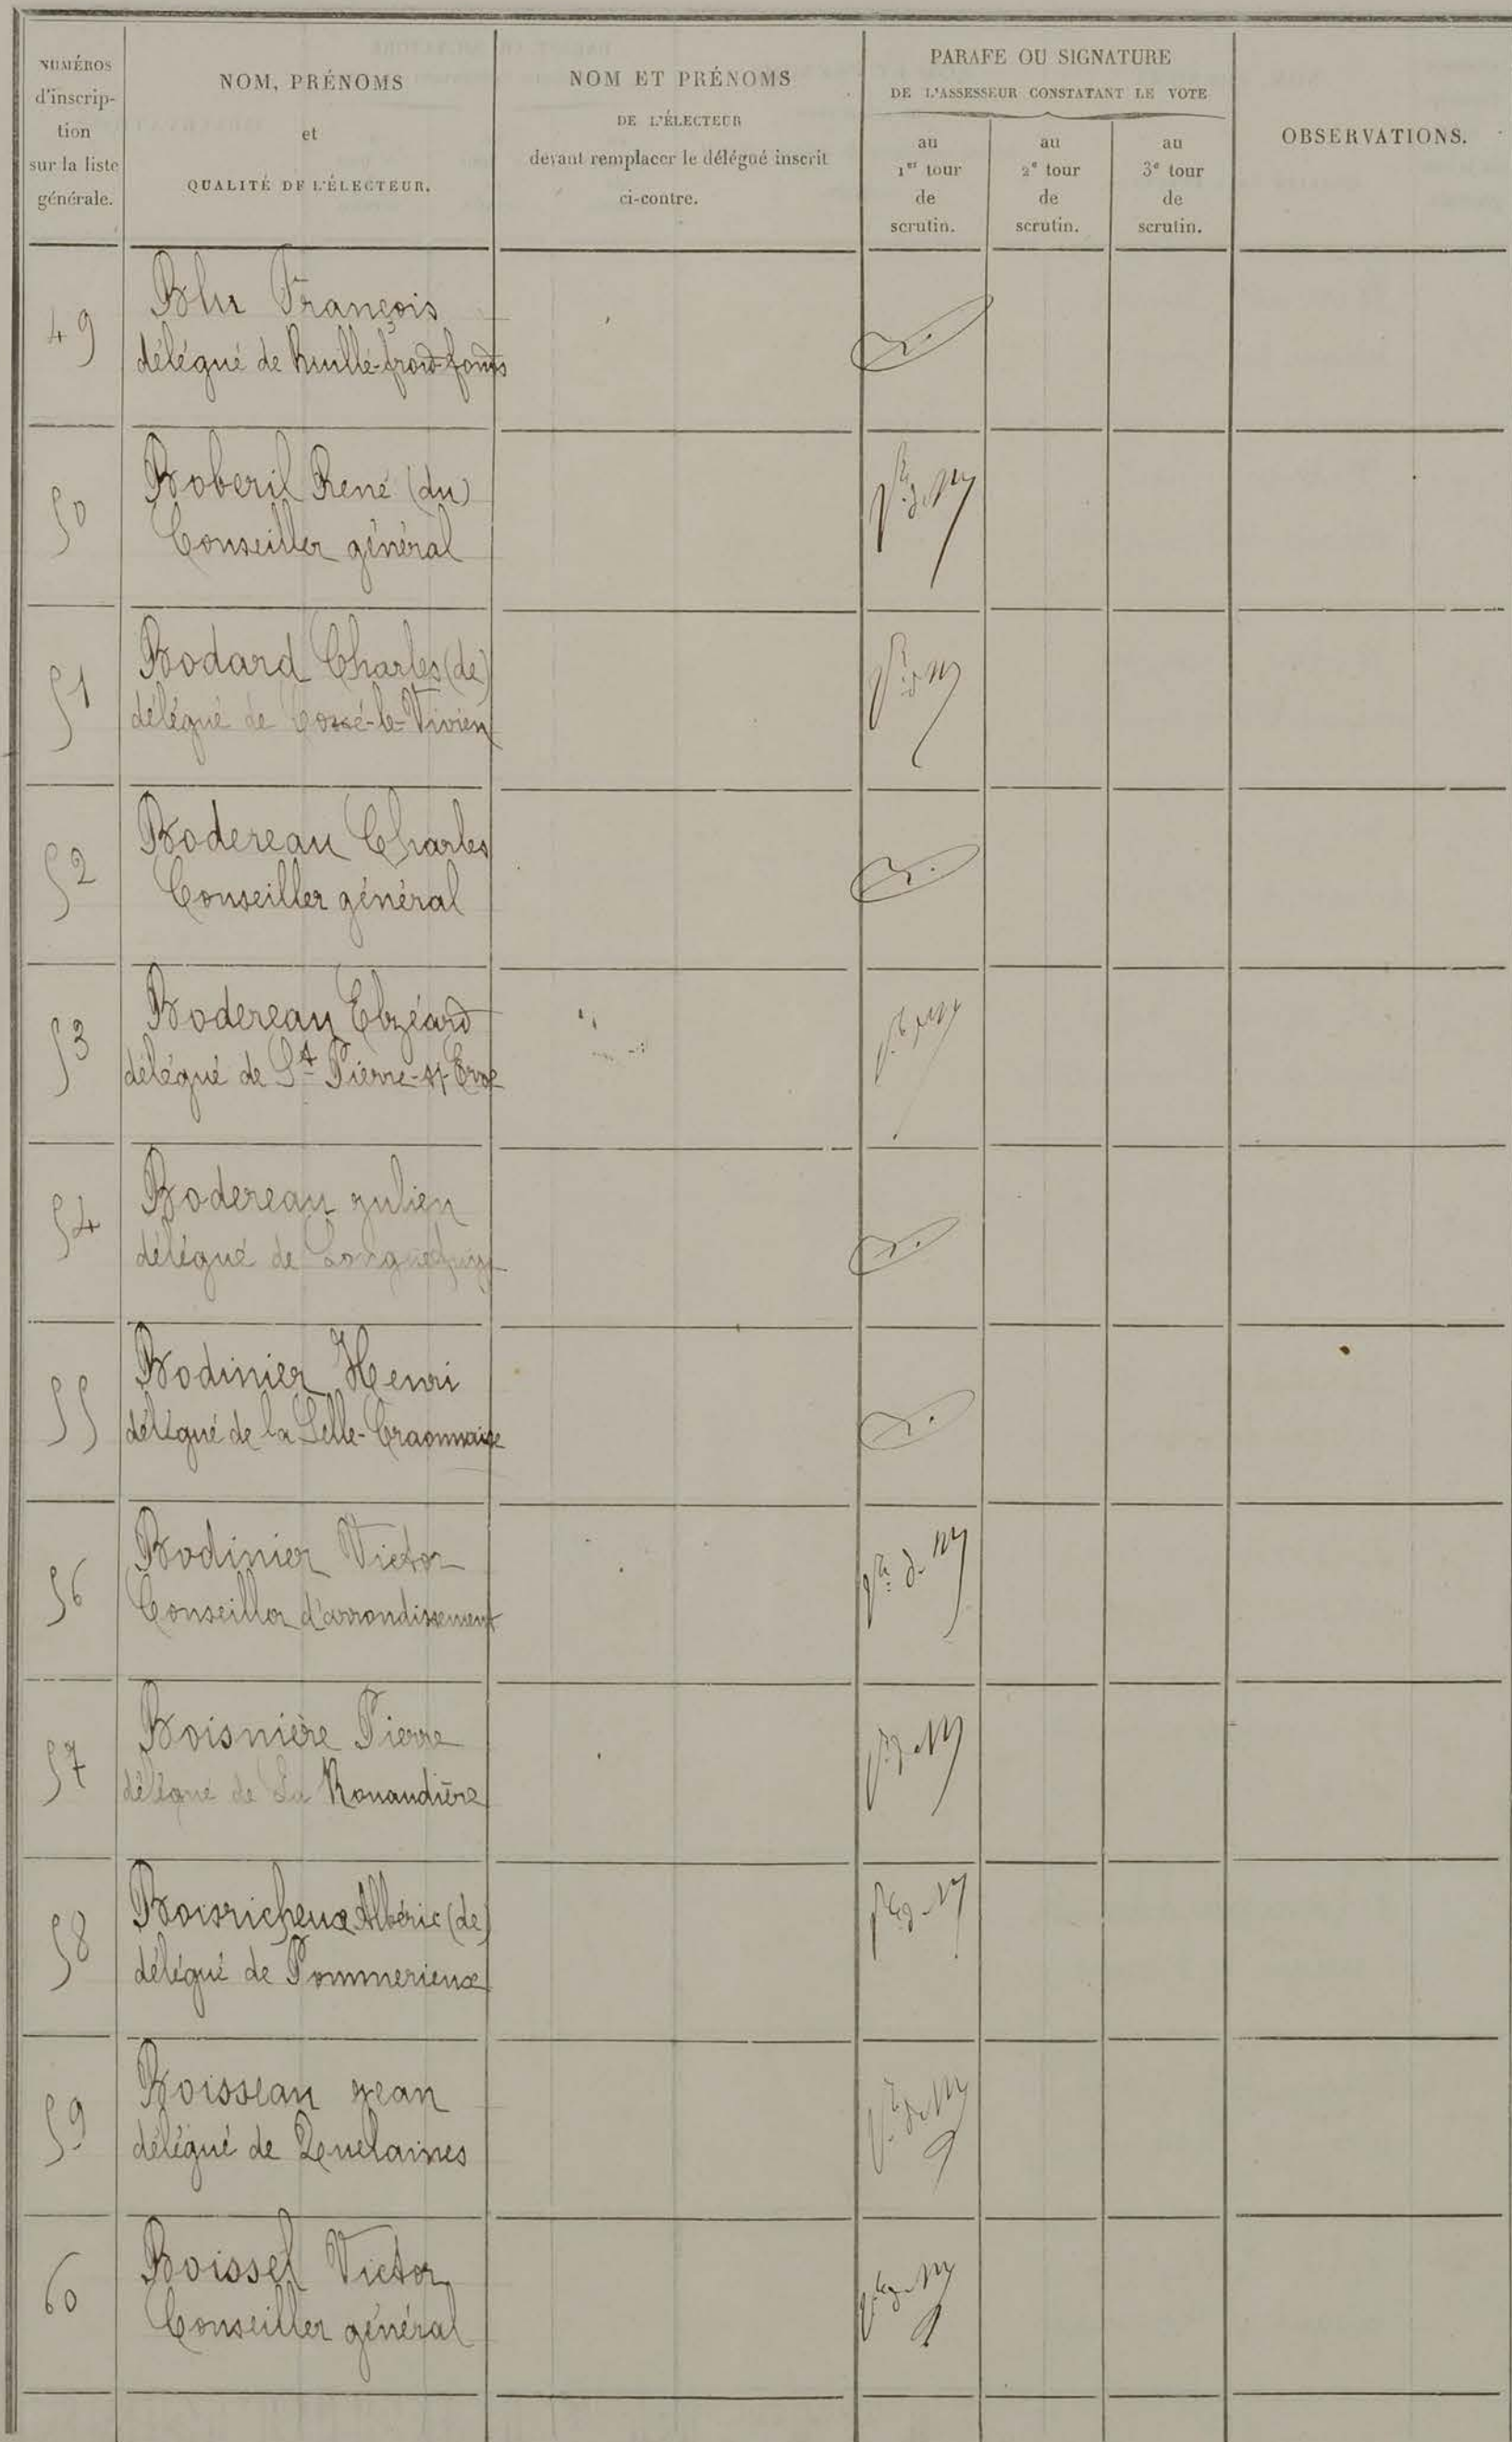 NUMÉROS
d'inscrip-
tion
sur la liste
générale.
NOM, PRÉNOMS
et
QUALITÉ DE L'ÉLECTEUR.
NOM ET PRÉNOMS
DE L'ÉLECTEUR
devant remplacer le délégué inscrit
ci-contre.
PARAFE OU SIGNATURE
DE L'ASSESSEUR CONSTATANT LE VOTE
au
1er tour
de
scrutin.
au
2e tour
de
scrutin.
au
3e tour
de
scrutin.
OBSERVATIONS.
49
Blu François
délégué de Ruillé-froid-fonds
50
Boberil René (du)
Conseiller général
51
Bodard Charles (de)
délégué de Cossé-le-Vivien
52
Bodereau Charles
Conseiller général
53
Bodereau Elzéard
délégué de St Pierre-s/-Erve
54
Bodereau Julien
délégué de Longuefuye
55
Bodinier Henri
délégué de la Selle-Craonnaise
56
Bodinier Victor
Conseiller d'arrondissement
57
Boisnière Pierre
délégué de La Rouaudière
58
Boisricheux Albéric (de)
délégué de Pommerieux
59
Boisseau Jean
délégué de Quelaines
60
Boissel Victor
Conseiller général